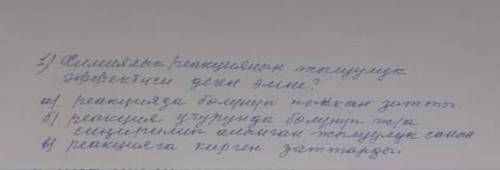 1) Химиялык реакциянын жылуулук
эффектиси деген эмне?
а) реакцияда бөлүнүп чыккан затты.
б) реакция учурунда бөлүнүп ж/а
сиңирилип алынган жылуулук санын
в) реакцияга кирген заттарды.